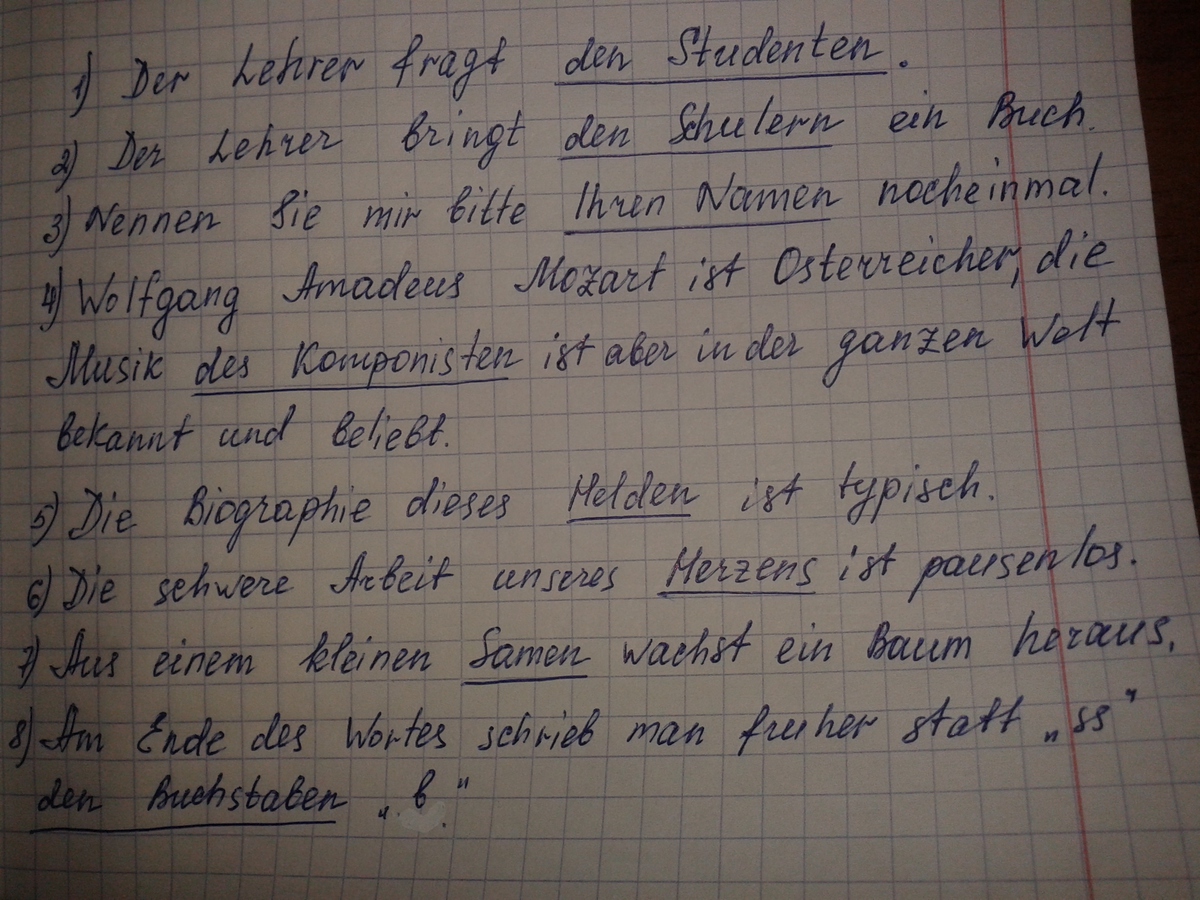 1) Der Lehrer fragt den Studenten.
2) Der Lehrer bringt den Schulern ein Buch.
3) Nennen Sie mir bitte Ihren Namen nocheinmal.
4) Wolfgang Amadeus Mozart ist Osterreicher, die
Musik des Komponisten ist aber in der ganzen Welt
bekannt und beliebt.
5) Die Biographie dieses Helden ist typisch.
6) Die schwere Arbeit unseres Herzens ist pausenlos.
7) Aus einem kleinen Samen wachst ein Baum heraus.
8) Am Ende des Wortes schrieb man fruher statt „ss“
den Buchstaben „ß“.